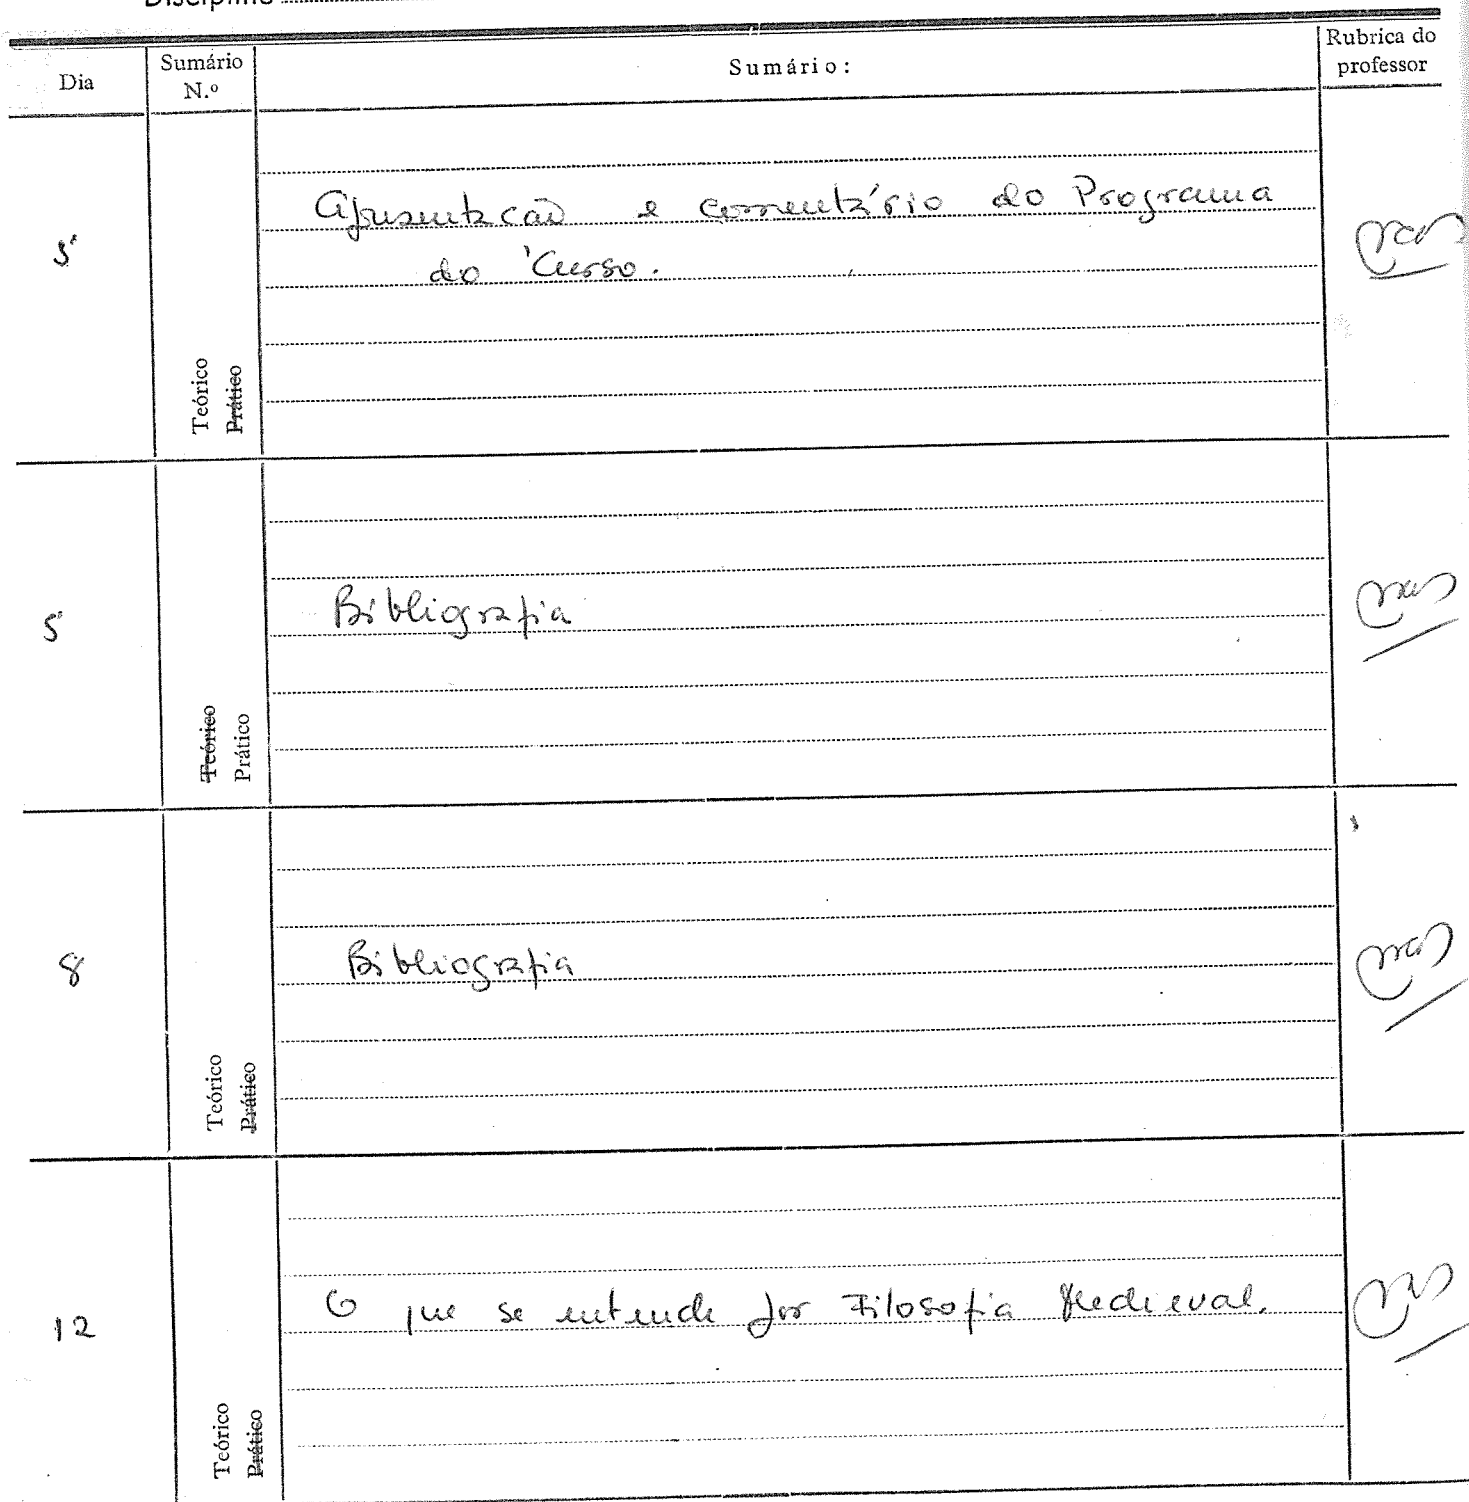 Disciplina
Dia
Sumário N.º
Sumário:
Rubrica do professor
5
Apresentação e comentário do Programa
do Curso.
Teórico
Prático
5
Bibliografia
Teórico
Prático
8
Bibliografia
Teórico
Prático
12
O que se entende por Filosofia Medieval.
Teórico
Prático